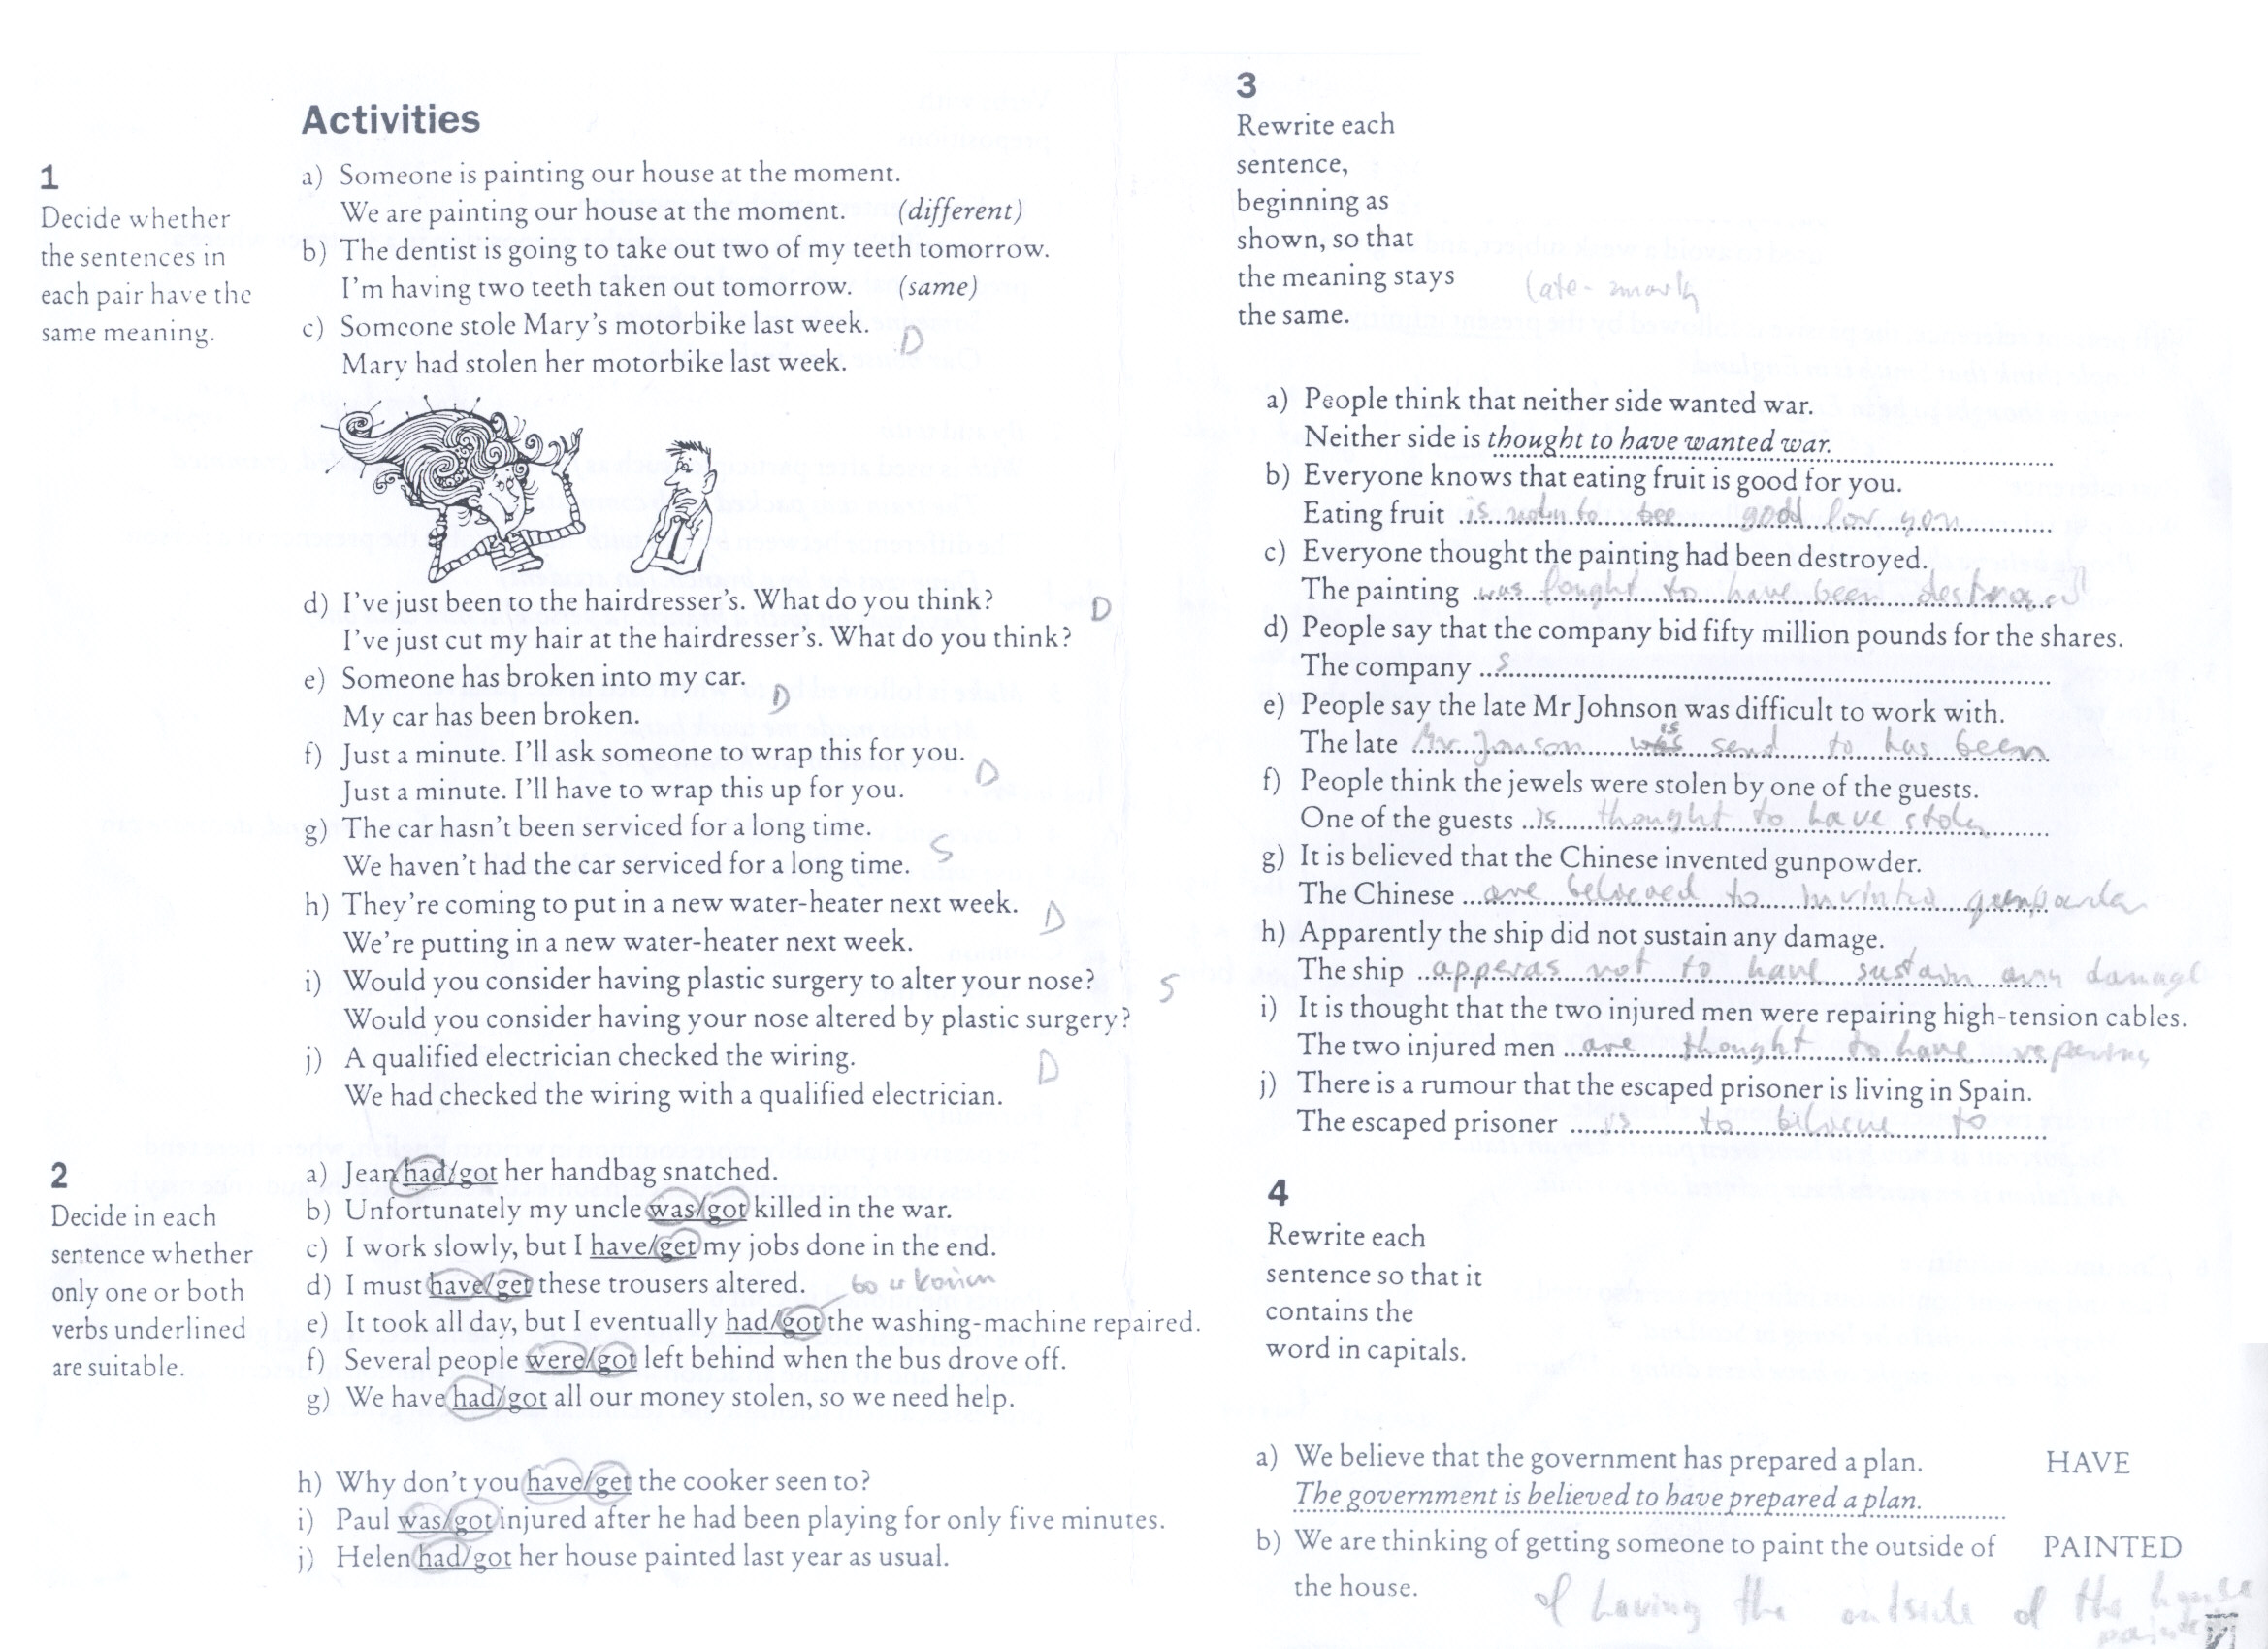 Activities
1
Decide whether
the sentences in
each pair have the
same meaning.
a) Someone is painting our house at the moment.
We are painting our house at the moment. (different)
b) The dentist is going to take out two of my teeth tomorrow.
I'm having two teeth taken out tomorrow. (same)
c) Someone stole Mary's motorbike last week.
D
Mary had stolen her motorbike last week.
d) I've just been to the hairdresser's. What do you think? D
I've just cut my hair at the hairdresser's. What do you think?
e) Someone has broken into my car.
D
My car has been broken.
f) Just a minute. I'll ask someone to wrap this for you.
D
Just a minute. I'll have to wrap this up for you.
g) The car hasn't been serviced for a long time.
S
We haven't had the car serviced for a long time.
h) They're coming to put in a new water-heater next week.
D
We're putting in a new water-heater next week.
i) Would you consider having plastic surgery to alter your nose? S
Would you consider having your nose altered by plastic surgery?
j) A qualified electrician checked the wiring. D
We had checked the wiring with a qualified electrician.
2
Decide in each
sentence whether
only one or both
verbs underlined
are suitable.
a) Jean had/got her handbag snatched.
b) Unfortunately my uncle was/got killed in the war.
c) I work slowly, but I have/get my jobs done in the end.
d) I must have/get these trousers altered.
e) It took all day, but I eventually had/got the washing-machine repaired.
f) Several people were/got left behind when the bus drove off.
g) We have had/got all our money stolen, so we need help.
h) Why don't you have/get the cooker seen to?
i) Paul was/got injured after he had been playing for only five minutes.
j) Helen had/got her house painted last year as usual.
3
Rewrite each
sentence,
beginning as
shown, so that
the meaning stays
the same.
late-
a) People think that neither side wanted war.
Neither side is thought to have wanted war.
b) Everyone knows that eating fruit is good for you.
Eating fruit is to bee good for you
c) Everyone thought the painting had been destroyed.
The painting was fought to have been destroyed
d) People say that the company bid fifty million pounds for the shares.
The company s
e) People say the late Mr Johnson was difficult to work with.
The late Mr Jonson is send to has been
f) People think the jewels were stolen by one of the guests.
One of the guests is thought to have stolen
g) It is believed that the Chinese invented gunpowder.
The Chinese are believed to
h) Apparently the ship did not sustain any damage.
The ship apperas not to have sustain any damage
i) It is thought that the two injured men were repairing high-tension cables.
The two injured men are thought to have repairing
j) There is a rumour that the escaped prisoner is living in Spain.
The escaped prisoner is to to
4
Rewrite each
sentence so that it
contains the
word in capitals.
a) We believe that the government has prepared a plan. HAVE
The government is believed to have prepared a plan.
b) We are thinking of getting someone to paint the outside of PAINTED
the house. of having the outside of the house
painted